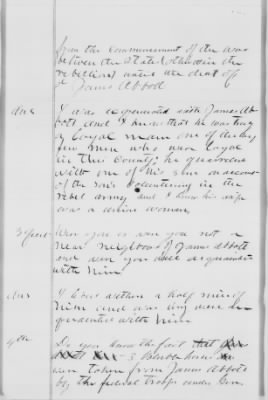 from the commencement of the war
between the States (otherwise the
rebellion) until the death of
James Abbott
Ans I was acquainted with James Ab
bott, and I know that he was truly
a loyal man one of the very
few men who were loyal
in this County, he quarreled
with one of his sons on account
of the son's volunteering in the
rebel army and I know his wife
was a Union woman
3d Quest Were you or were you not a
near neighbour of James Abbott
and were you well acquainted
with him
Ans I lived within a half mile of
him and was very well ac
quainted with him
4th Do you know the fact that
3 valuable horses
were taken from James Abbott
by the federal troops under Gen